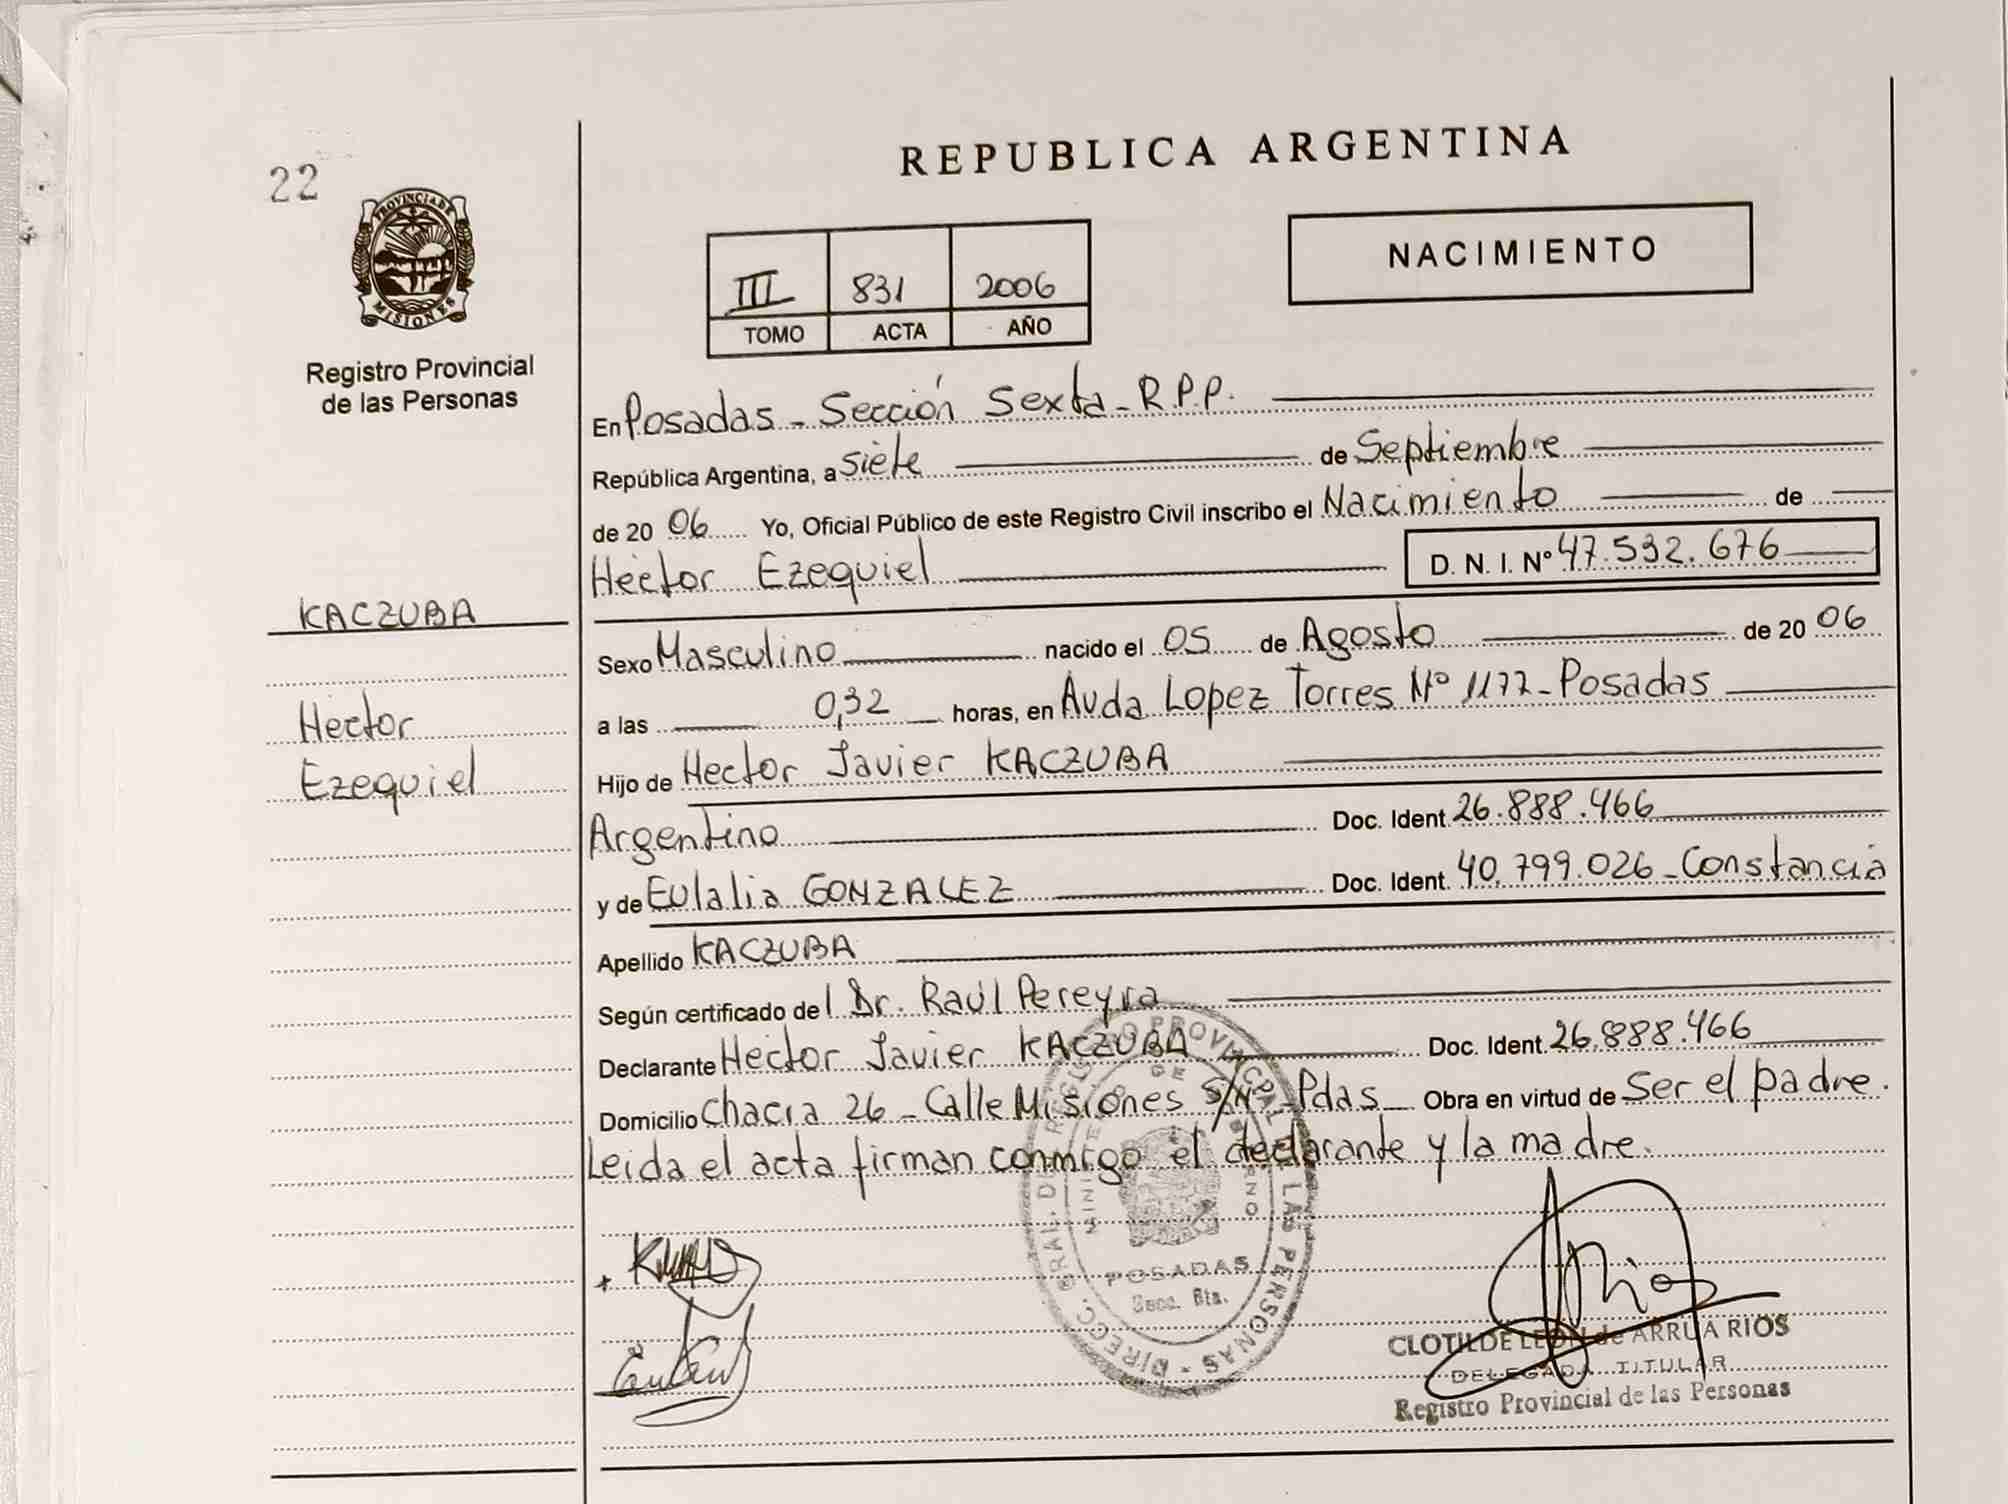 REPUBLICA ARGENTINA
22
PROVINCIA DE
MISIONES
Registro Provincial
de las Personas
III 831 2006
TOMO ACTA AÑO
NACIMIENTO
En Posadas - Sección Sexta - R.P.P.
República Argentina, a siete de Septiembre
de 20 06 Yo, Oficial Público de este Registro Civil inscribo el Nacimiento de
Hector Ezequiel D. N. I. Nº 47.532.676
KACZUBA
Hector
Ezequiel
Sexo Masculino nacido el 05 de Agosto de 20 06
a las 0,32 horas, en Avda Lopez Torres Nº 1177 - Posadas
Hijo de Hector Javier KACZUBA
Argentino Doc. Ident. 26.888.466
y de Eulalia GONZALEZ Doc. Ident. 40.799.026 - Constancia
Apellido KACZUBA
Según certificado del Dr. Raúl Pereyra
Declarante Hector Javier KACZUBA Doc. Ident. 26.888.466
Domicilio Chacra 26 - Calle Misiones S/Nº - Pdas Obra en virtud de Ser el padre.
Leida el acta firman conmigo el declarante y la madre.
DIRECC. GRAL. DE REGISTRO PROVINCIAL DE LAS PERSONAS
MINISTERIO DE GOBIERNO
POSADAS
Secc. 6ta.
CLOTILDE LEON de ARRUA RIOS
DELEGADA TITULAR
Registro Provincial de las Personas